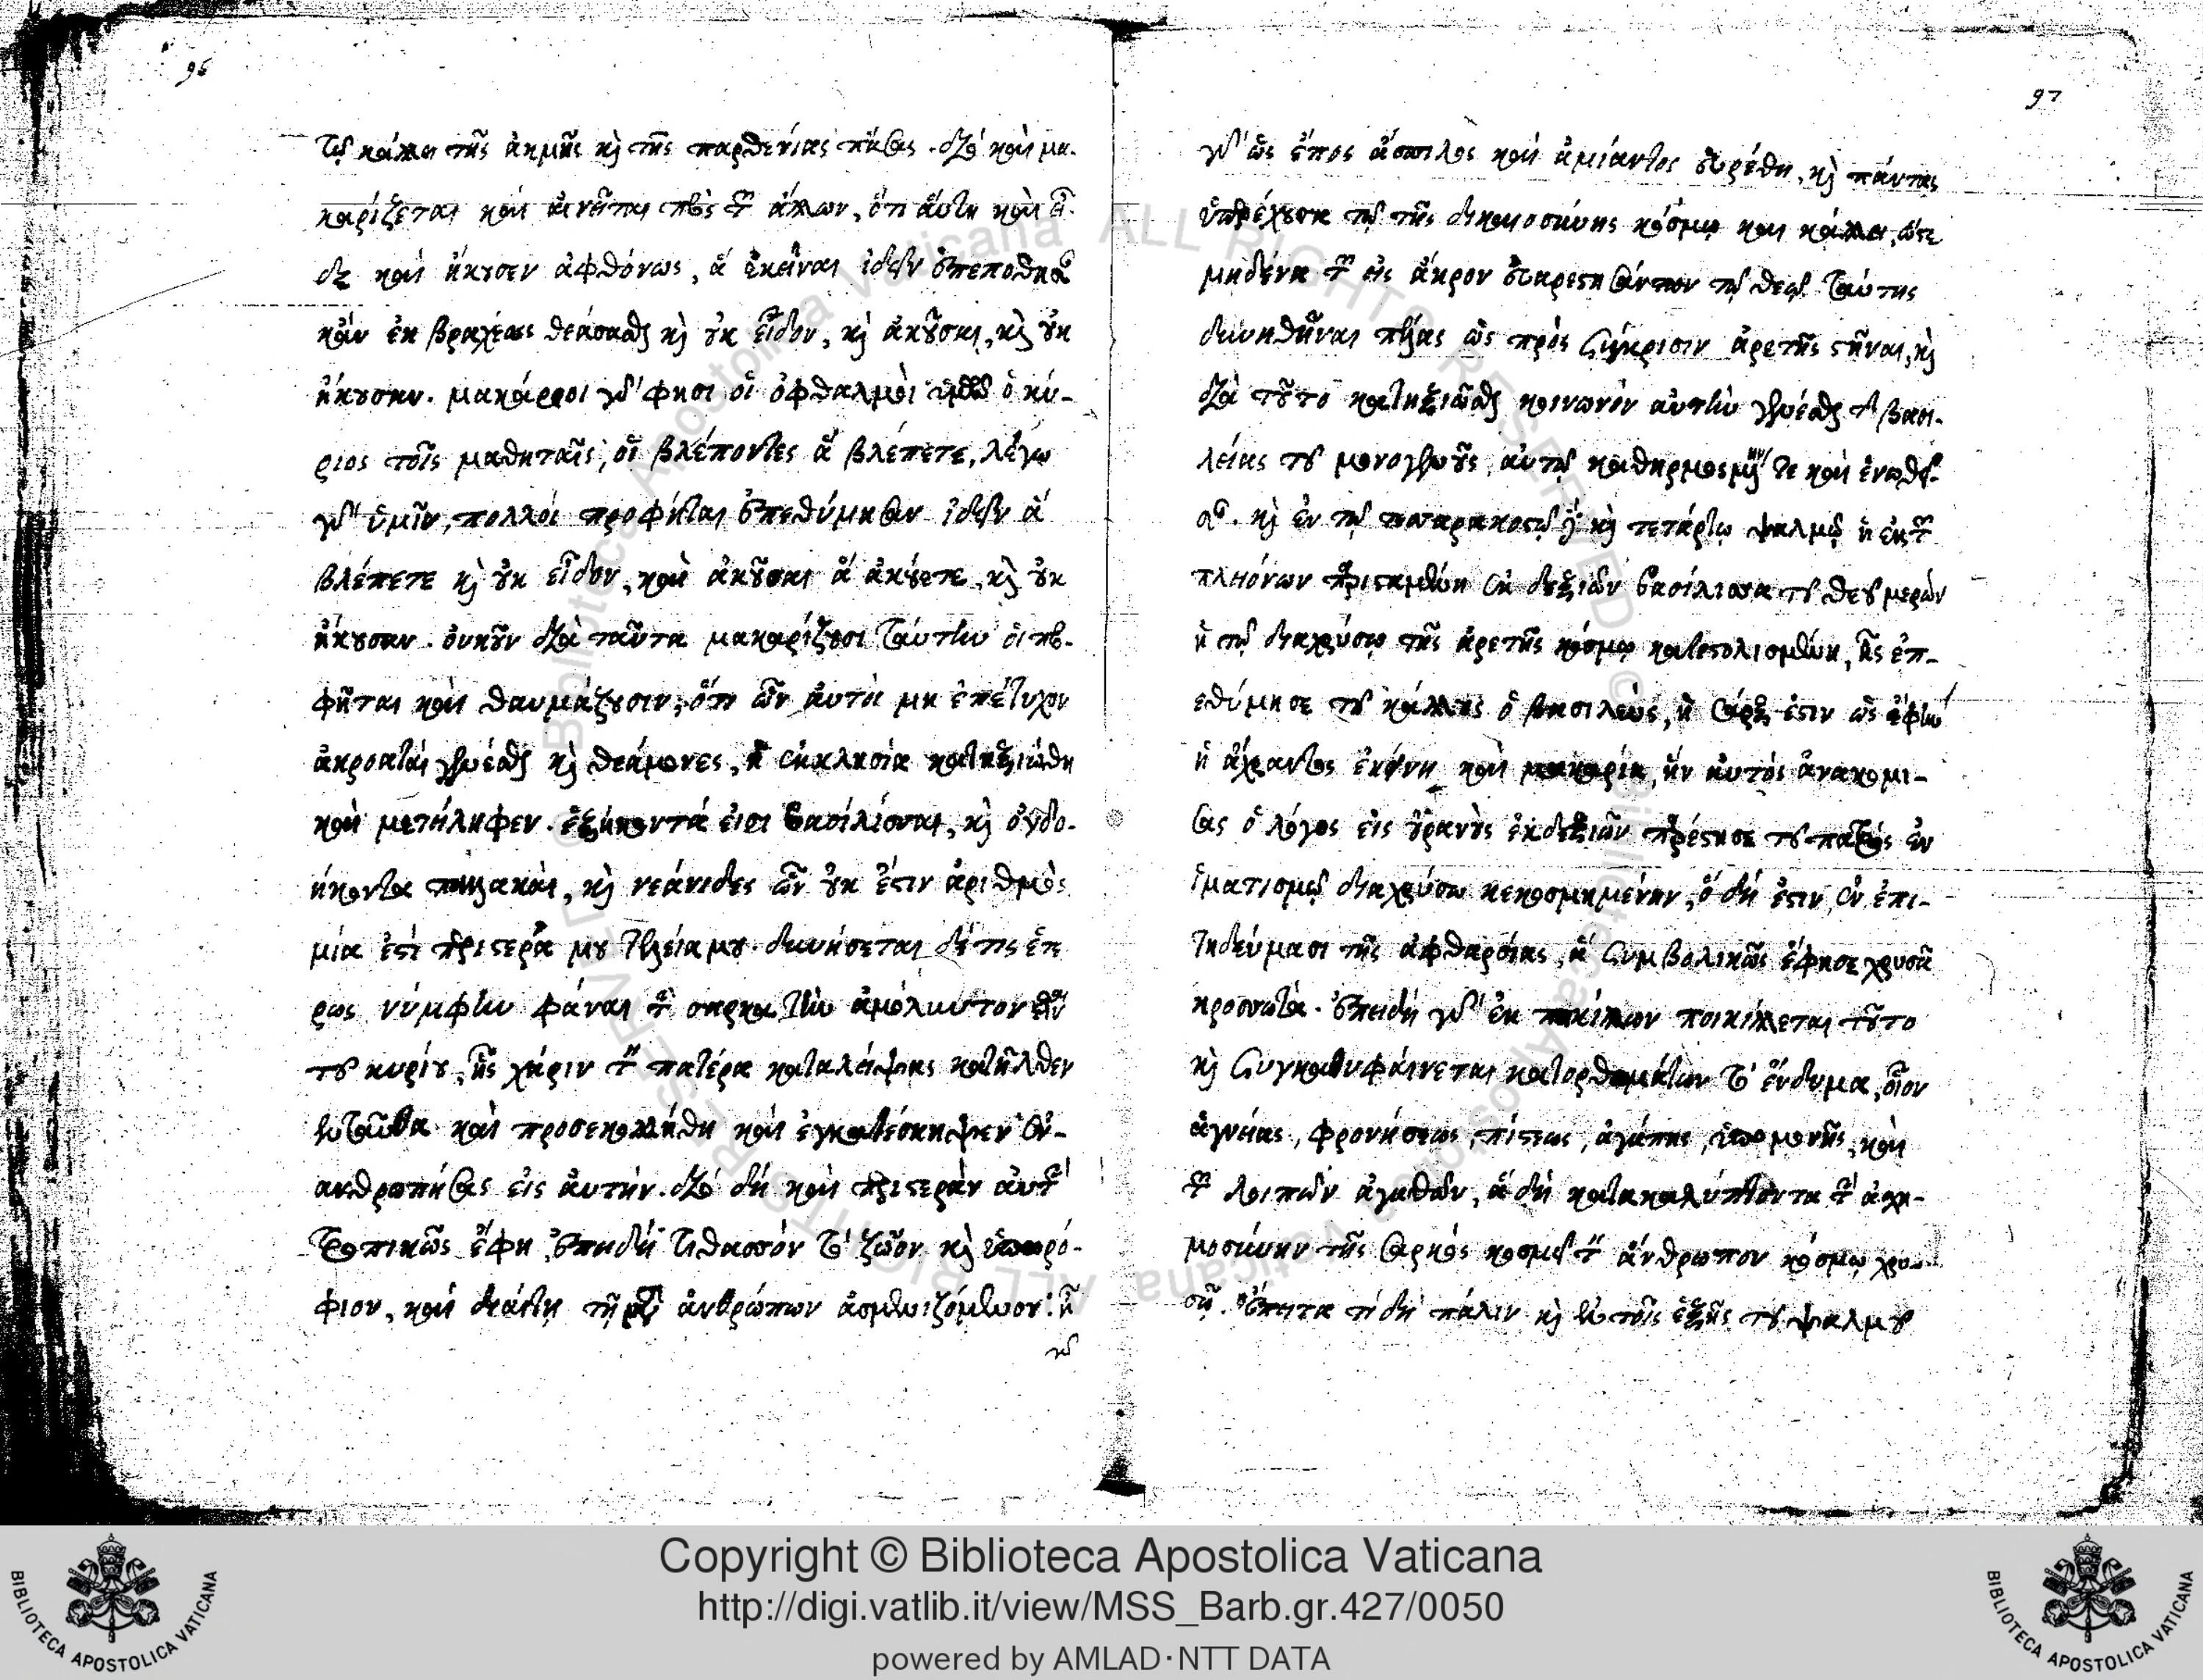 96
τῷ κάλλει τῆς ἀκμῆς καὶ τῆς παρθενίας πάσας. διὸ καὶ μα-
καρίζεται καὶ αἰνεῖται πρὸς τῶν ἄλλων, ὅτι αὕτη καὶ εἶ-
δε καὶ ἤκουσεν ἀφθόνως, ἃ ἐκεῖναι ἰδεῖν ἐπεπόθησαν
κἂν ἐκ βραχέως θεάσασθαι καὶ οὐκ εἶδον, καὶ ἀκοῦσαι, καὶ οὐκ
ἤκουσαν. μακάριοι γὰρ φησι οἱ ὀφθαλμοὶ ὑμῶν ὁ κύ-
ριος τοῖς μαθηταῖς, οἱ βλέποντες ἃ βλέπετε, λέγω
γὰρ ὑμῖν, πολλοὶ προφῆται ἐπεθύμησαν ἰδεῖν ἃ
βλέπετε καὶ οὐκ εἶδον, καὶ ἀκοῦσαι ἃ ἀκούετε, καὶ οὐκ
ἤκουσαν. οὐκοῦν διὰ ταῦτα μακαρίζουσι ταύτην οἱ προ-
φῆται καὶ θαυμάζουσιν, ὅτι ὧν αὐτοὶ μὴ ἐπέτυχον
ἀκροαταὶ γενέσθαι καὶ θεάμονες, ἡ ἐκκλησία κατηξιώθη
καὶ μετείληφεν. ἑξήκοντά εἰσι βασίλισσαι, καὶ ὀγδο-
ήκοντα παλλακαὶ, καὶ νεάνιδες ὧν οὐκ ἔστιν ἀριθμὸς
μία ἐστὶ περιστερά μου τελεία μου. δυνήσεται δέ τις ἑτέ
ρως νύμφην φάναι τὴν σάρκα τὴν ἀμόλυντον εἶναι
τοῦ κυρίου, ἧς χάριν τὸν πατέρα καταλείψας κατῆλθεν
ἐνταῦθα καὶ προσεκολλήθη καὶ ἐγκατέσκηψεν ἐν-
ανθρωπήσας εἰς αὐτήν. διὸ δὴ καὶ περιστερὰν αὐτὴν
τροπικῶς ἔφη, ἐπειδὴ τιθασσὸν τὸ ζῶον καὶ ὑπωρό-
φιον, καὶ διαίτῃ τῇ μετὰ ἀνθρώπων ἀσμενιζόμενον. ἡ
γὰρ
97
γὰρ ὡς ἔπος ἄσπιλος καὶ ἀμίαντος εὑρέθη, καὶ πάντας
ὑπερέχουσα τῷ τῆς δικαιοσύνης κόσμῳ καὶ κάλλει, ὥστε
μηδένα τῶν εἰς ἄκρον εὐαρεστησάντων τῷ θεῷ ταύτης
δυνηθῆναι πέλας ὡς πρὸς σύγκρισιν ἀρετῆς στῆναι, καὶ
διὰ τοῦτο κατηξιῶσθαι κοινωνὸν αὐτὴν γενέσθαι τῆς βασι-
λείας τοῦ μονογενοῦς, αὐτῷ καθηρμοσμένην τε καὶ ἑνωθεῖ-
σαν. καὶ ἐν τῷ τεσσαρακοστῷ δὲ καὶ τετάρτῳ ψαλμῷ ἡ ἐκ τῶν
πλειόνων παρισταμένη ἐκ δεξιῶν βασίλισσα τοῦ θεοῦ μερῶν
ἡ τῷ διαχρύσῳ τῆς ἀρετῆς κόσμῳ κατεστολισμένη, ἧς ἐπ-
εθύμησε τοῦ κάλλους ὁ βασιλεύς, ἡ σάρξ ἐστιν ὡς ἔφην
ἡ ἄχραντος ἐκείνη καὶ μακαρία, ἣν αὐτὸς ἀνακομί-
σας ὁ λόγος εἰς οὐρανοὺς ἐκ δεξιῶν παρέστησε τοῦ πατρὸς ἐν
ἱματισμῷ διαχρύσῳ κεκοσμημένην, ὃ δή ἐστιν, ἐν ἐπι-
τηδεύμασι τῆς ἀφθαρσίας, ἃ συμβολικῶς ἔφησε χρυσᾶ
κροσσωτά. ἐπειδὴ γὰρ ἐκ ποικίλων ποικίλλεται τοῦτο
καὶ συγκαθυφαίνεται κατορθωμάτων τὸ ἔνδυμα, οἷον
ἁγνείας, φρονήσεως, πίστεως, ἀγάπης, ὑπομονῆς, καὶ
τῶν λοιπῶν ἀγαθῶν, ἃ δὴ κατακαλύπτοντα τὴν ἀσχη-
μοσύνην τῆς σαρκὸς κοσμεῖ τὸν ἄνθρωπον κόσμῳ χρυ-
σῷ. ἔπειτα τί δὴ πάλιν καὶ ἐν τοῖς ἑξῆς τοῦ ψαλμοῦ
ALL RIGHTS RESERVED © Biblioteca Apostolica Vaticana
Copyright © Biblioteca Apostolica Vaticana
http://digi.vatlib.it/view/MSS_Barb.gr.427/0050
powered by AMLAD·NTT DATA
BIBLIOTECA APOSTOLICA VATICANA
BIBLIOTECA APOSTOLICA VATICANA